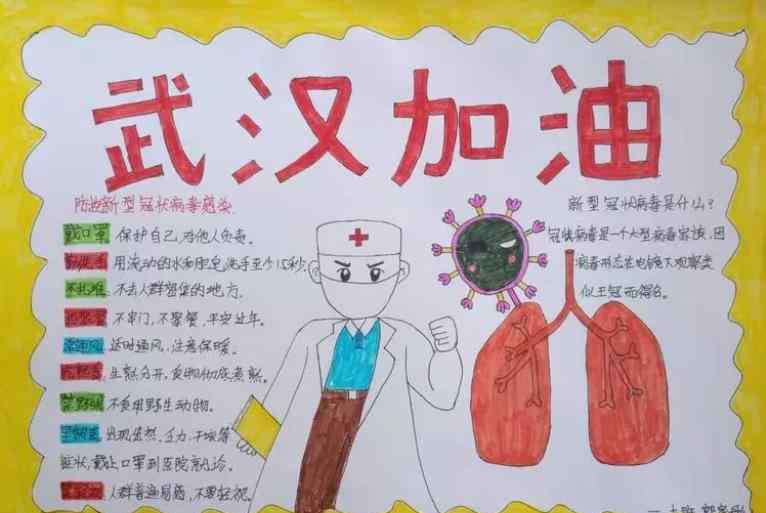 武汉加油
防控新型冠状病毒感染
戴口罩 保护自己,对他人负责。
勤洗手 用流动的水和肥皂洗手至少15秒。
不扎堆 不去人群密集的地方。
不串门,不聚餐,平安过年。
常通风 适时通风,注意保暖。
生熟分开,食物彻底煮熟。
禁野味 不食用野生动物。
出现发热、乏力、干咳等
症状,戴上口罩到医院就诊。
人群普遍易感,不要轻视。
新型冠状病毒是什么?
冠状病毒是一个大型病毒家族,因
病毒形态在电镜下观察类
似王冠而得名。